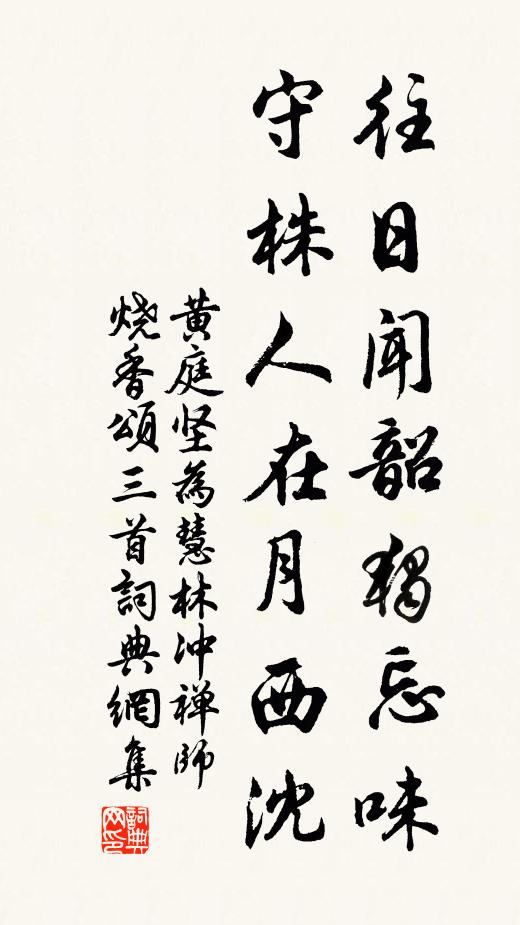 往日闻韶独忘味
守株人在月西沈
黄庭坚為慧林冲禅师
烧香頌三首詞典網集
詞典
网印